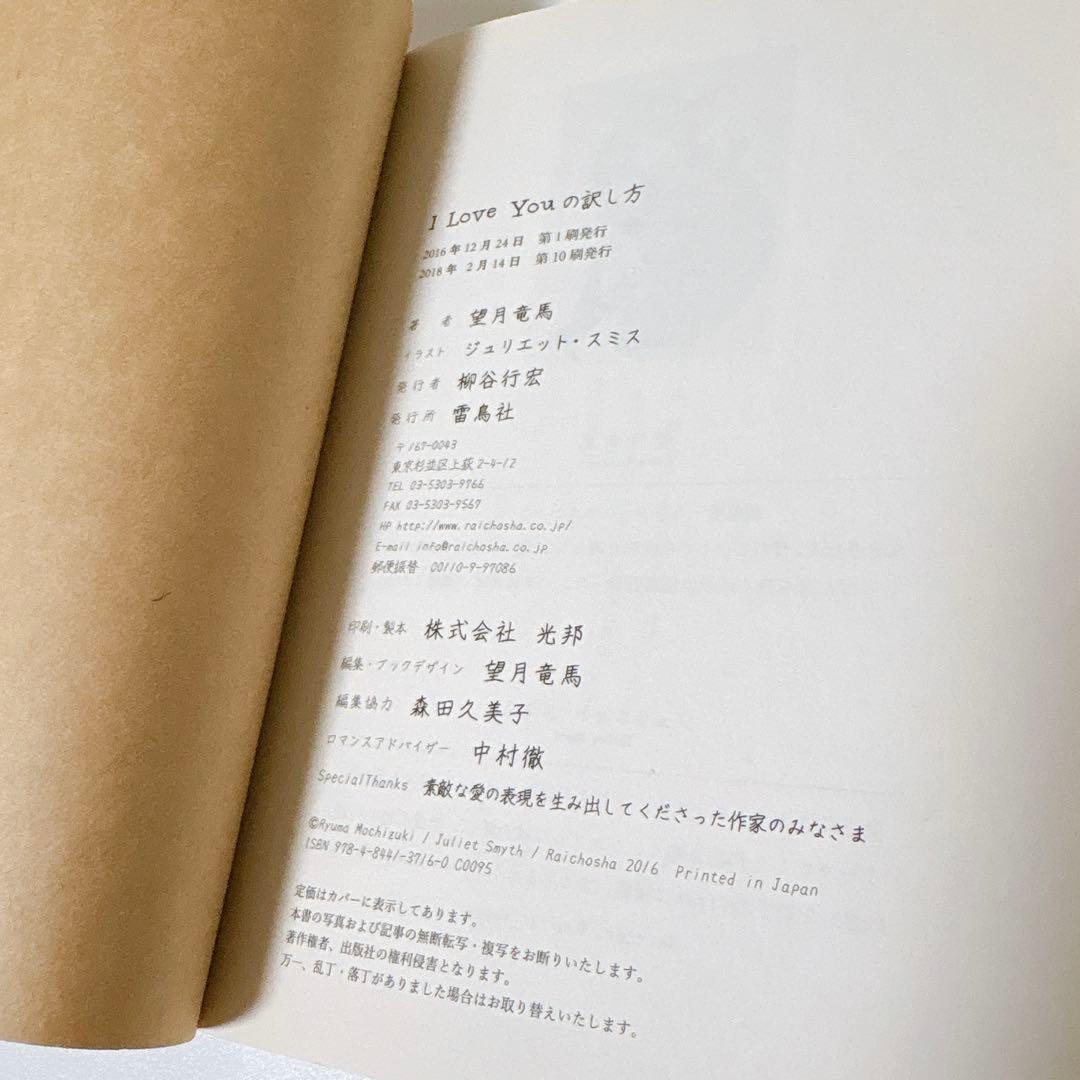 I Love Youの訳し方
2016年12月24日 第1刷発行
2018年 2月14日 第10刷発行
著 者 望月竜馬
イラスト ジュリエット・スミス
発行者 柳谷行宏
発行所 雷鳥社
〒167-0043
東京杉並区上荻2-4-12
TEL 03-5303-9766
FAX 03-5303-9567
HP http://www.raichosha.co.jp/
E-mail info@raichosha.co.jp
郵便振替 00110-9-97086
印刷・製本 株式会社 光邦
編集・ブックデザイン 望月竜馬
編集協力 森田久美子
ロマンスアドバイザー 中村徹
SpecialThanks 素敵な愛の表現を生み出してくださった作家のみなさま
©Ryuma Mochizuki / Juliet Smyth / Raichosha 2016 Printed in Japan
ISBN 978-4-8441-3716-0 C0095
定価はカバーに表示してあります。
本書の写真および記事の無断転写・複写をお断りいたします。
著作権者、出版社の権利侵害となります。
万一、乱丁・落丁がありました場合はお取り替えいたします。